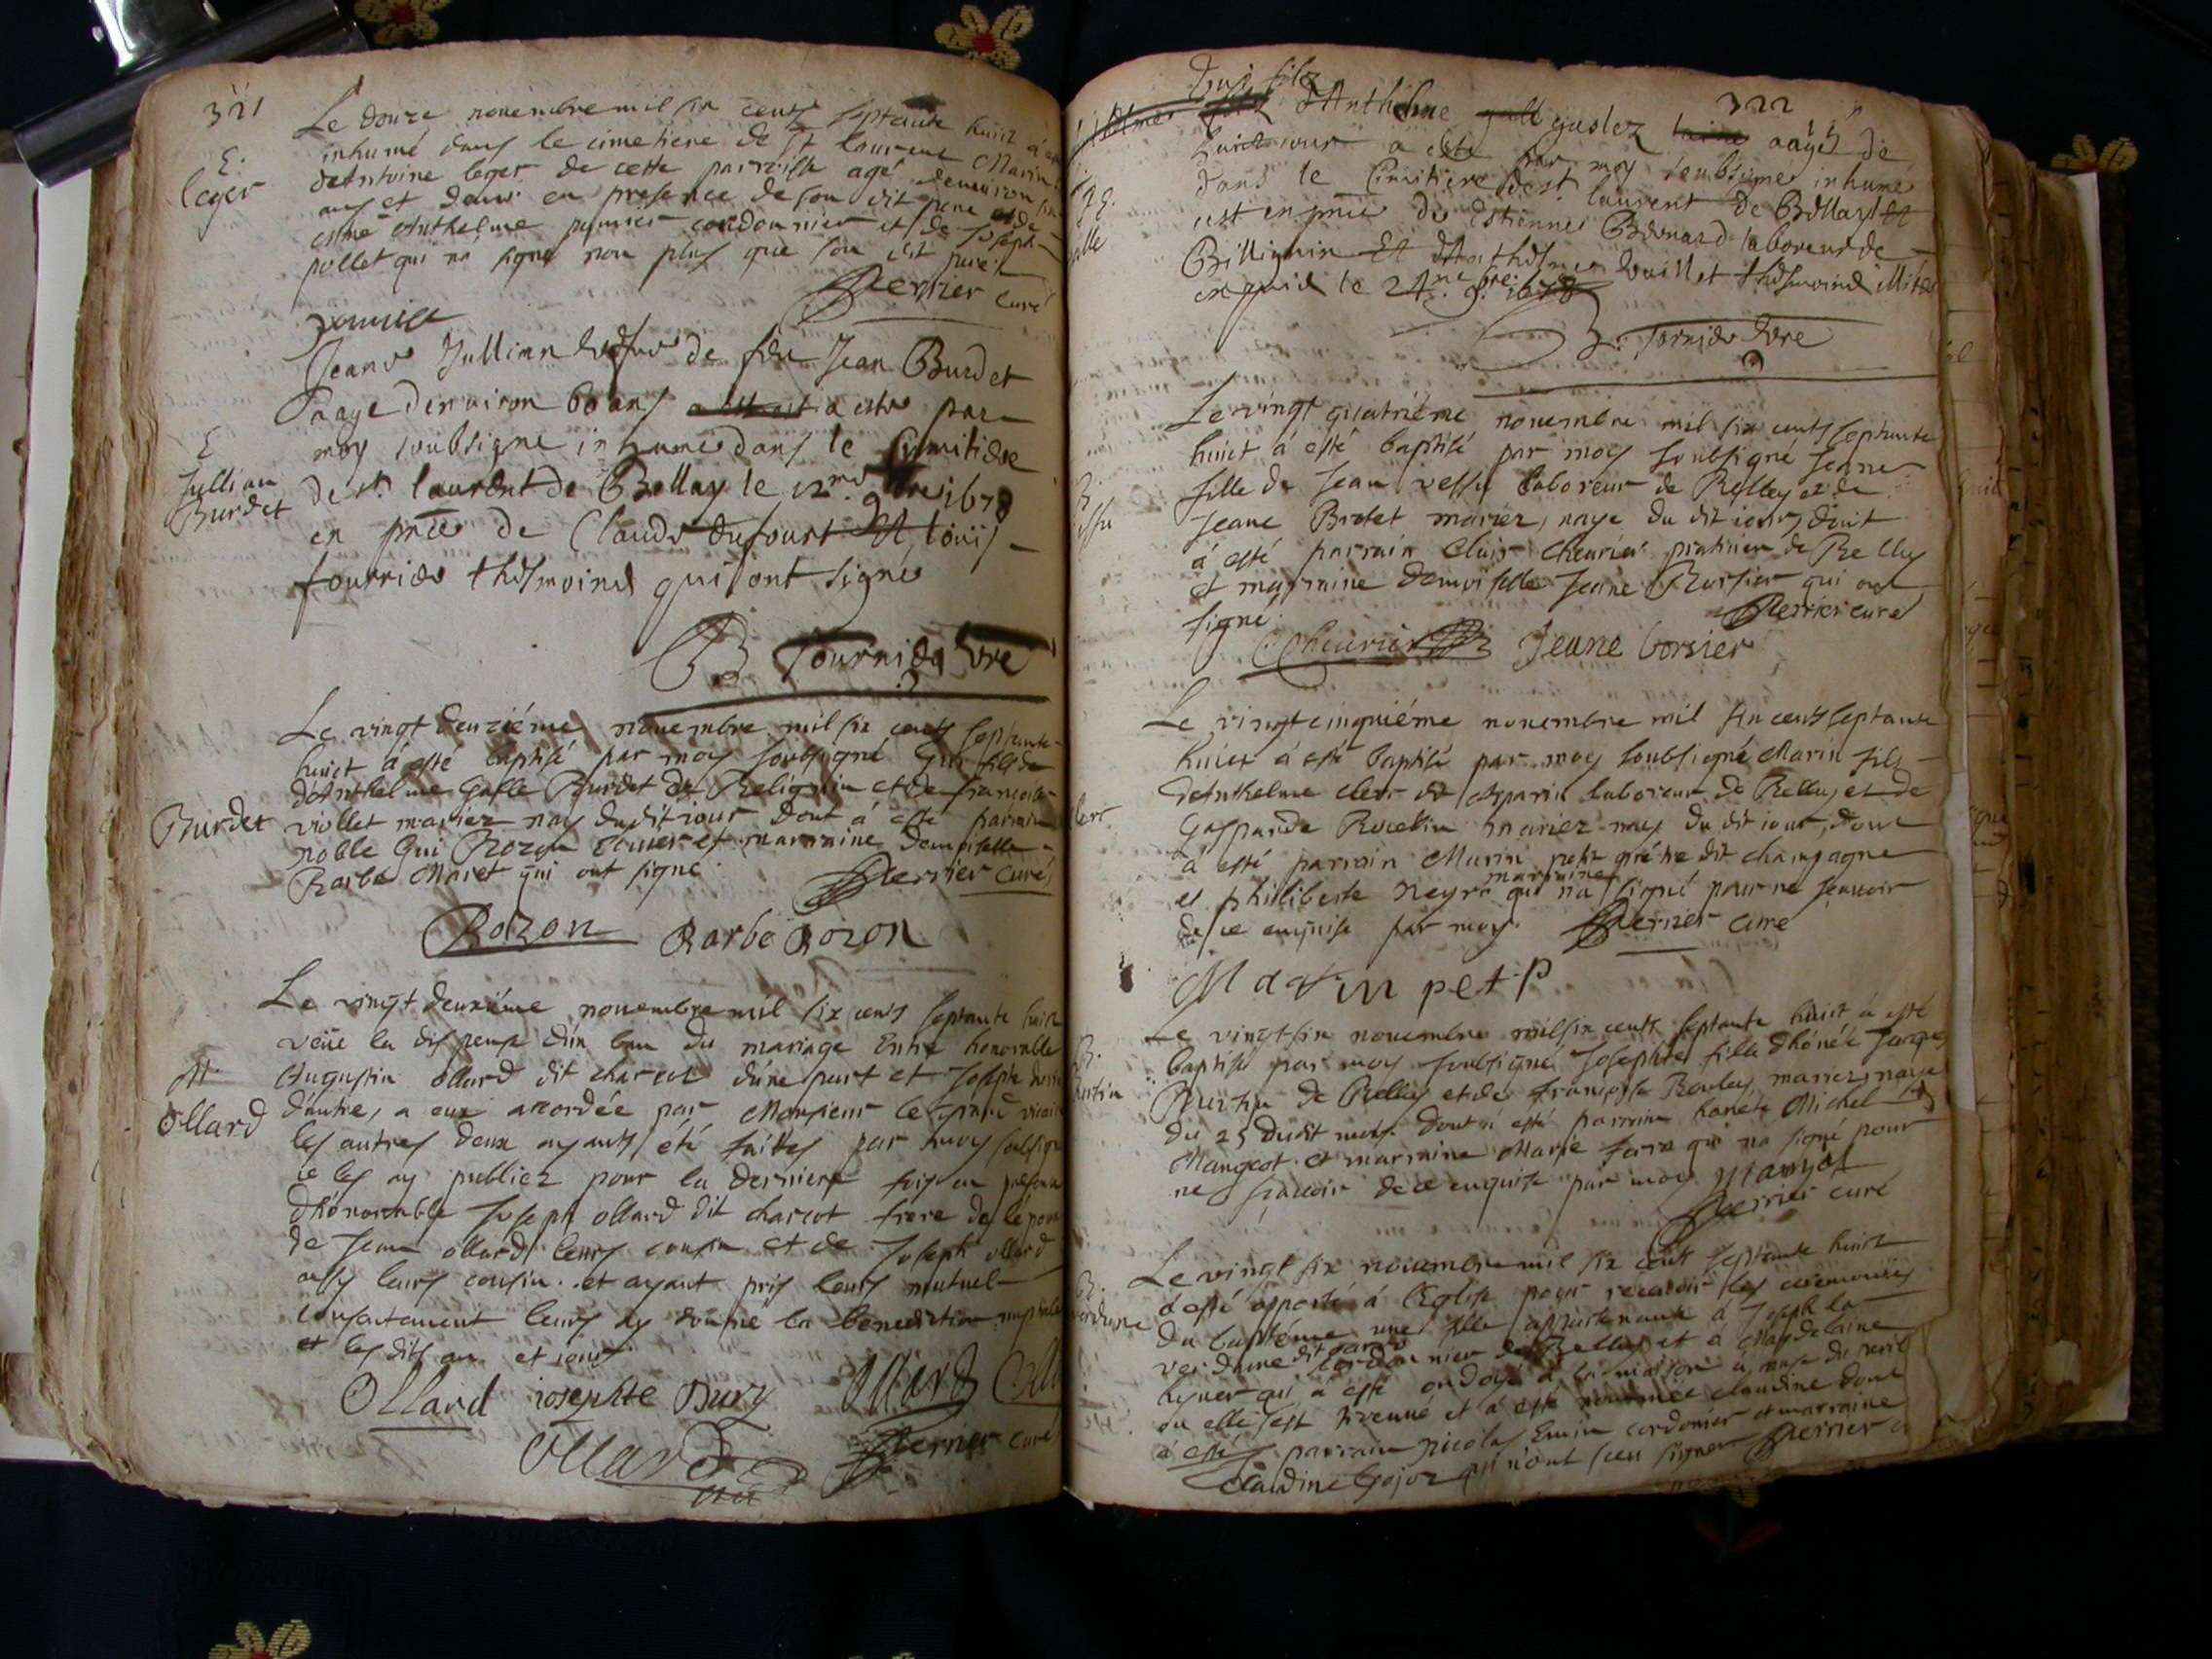 321
Le douze novembre mil six cents septante huict a
E.
leger
inhumé dans le cimetiere de st laurent Marin
de Antoine leger de cette parroisse agé denuiron
ans et demi en presence de son dit pere et de
Anthelme cordounier et de Joseph
pollet qui nà signé non plus que son dit pere
Perrier curé
Jeane Jullian de feu Jean Burdet
aage denuiron 60 ans a este par
E
Jullian
Burdet
moy soubsigne inhumee dans le Cymitiere
de st laurent de Bellay le 12me 9bre 1678
en pnce de Claude dufour Et loüis
fournier thesmoins qui ont signe
B fournier vre
Le vingt deuziéme nouembre mil six cents septante
huict à esté baptisé par moy soubsigné Gui fils de
dAnthelme Galle Burdet de Belignin et de francoise
Burdet
viollet mariez nay du dit iour dont à esté parrain
noble Gui Rozon et marraine Demoiselle
Barbe Maret qui ont signé
Perrier curé
Rozon Barbe Rozon
Le vingt deuxiéme nouembre mil six cents septante huict
veüe la dispense dün ban du mariage Entre honorable
M
Ollard
Augustin ollard dit charcot dune part et Josephte
dautre, a eux accordée par Monsieur le grand vicaire
les autres deux ayants été faittes par moy soubsigné
ie les ay publiez pour la derniere fois en presence
dhonorable Joseph ollard dit charcot frere de lépoux
de Jean ollard leurs cousin et de Joseph ollard
aussy leurs cousin. et ayant pris leurs mutuel
consentement leurs ay donné la benediction nuptiale
et les dits an et iour
Ollard iosephte Dury Ollard
Ollard
Perrier curé
322
fils dAnthelme gaslez aagé de
huict iours a este par moy soubsigne inhume
dans le Cimitiere de st laurent de Bellay Et
cest en pnce de Estienne Bernard laboreur de
Billignin Et dAnthelme vuillet thesmoins
le 24me 9bre 1678
B. fornier vre
Le vingt quatriéme nouembre mil six cents septante
huict à esté baptisé par moy soubsigné Jeane
fille de Jean vessu laboreur de Belley et de
Jeane Brotet mariez, naye du dit iour, dont
à esté parrain Chevrier praticien de Belley
et marraine demoiselle Jeane Borsier qui ont
signé.
Perrier curé
Cheurier Jeane borsier
Le vingt cinquiéme nouembre mil six cents septante
huict à esté baptisé par moy soubsigné Marin fils
dAnthelme clerc laboreur de Belley et de
Gasparde mariez nay du dit iour, dont
à esté parrain Marin petit dit champagne
et philiberte Neyra marraine qui na signé pour ne scauoir
de ce enquise par moy. Perrier curé
Martin pet P
Le vingt six nouembre mil six cents septante huict à esté
baptisé par moy soubsigné Josephte fille dhonéte Jacques
Burtin de Belley et de francoise mariez, naye
du 25 dudit mois. dont à esté parrain honéte Michel
Mangeot. et marraine Marie qui nà signé pour
ne scauoir de ce enquise par moy
Perrier curé
Le vingt six nouembre mil six cents septante huict
à esté apporté à l'Eglise pour receuoir les ceremonies
du baptéme une fille appartenante à Joseph la
verdune dit cordonnier de Belley et à Magdelaine
qui à esté ondoyé à la maison à cause du peril
ou elle sest treuué et à esté nommée claudine dont
à esté parrain nicolas cordonier et marraine
claudine Gojoz qui n'ont sceu signer Perrier